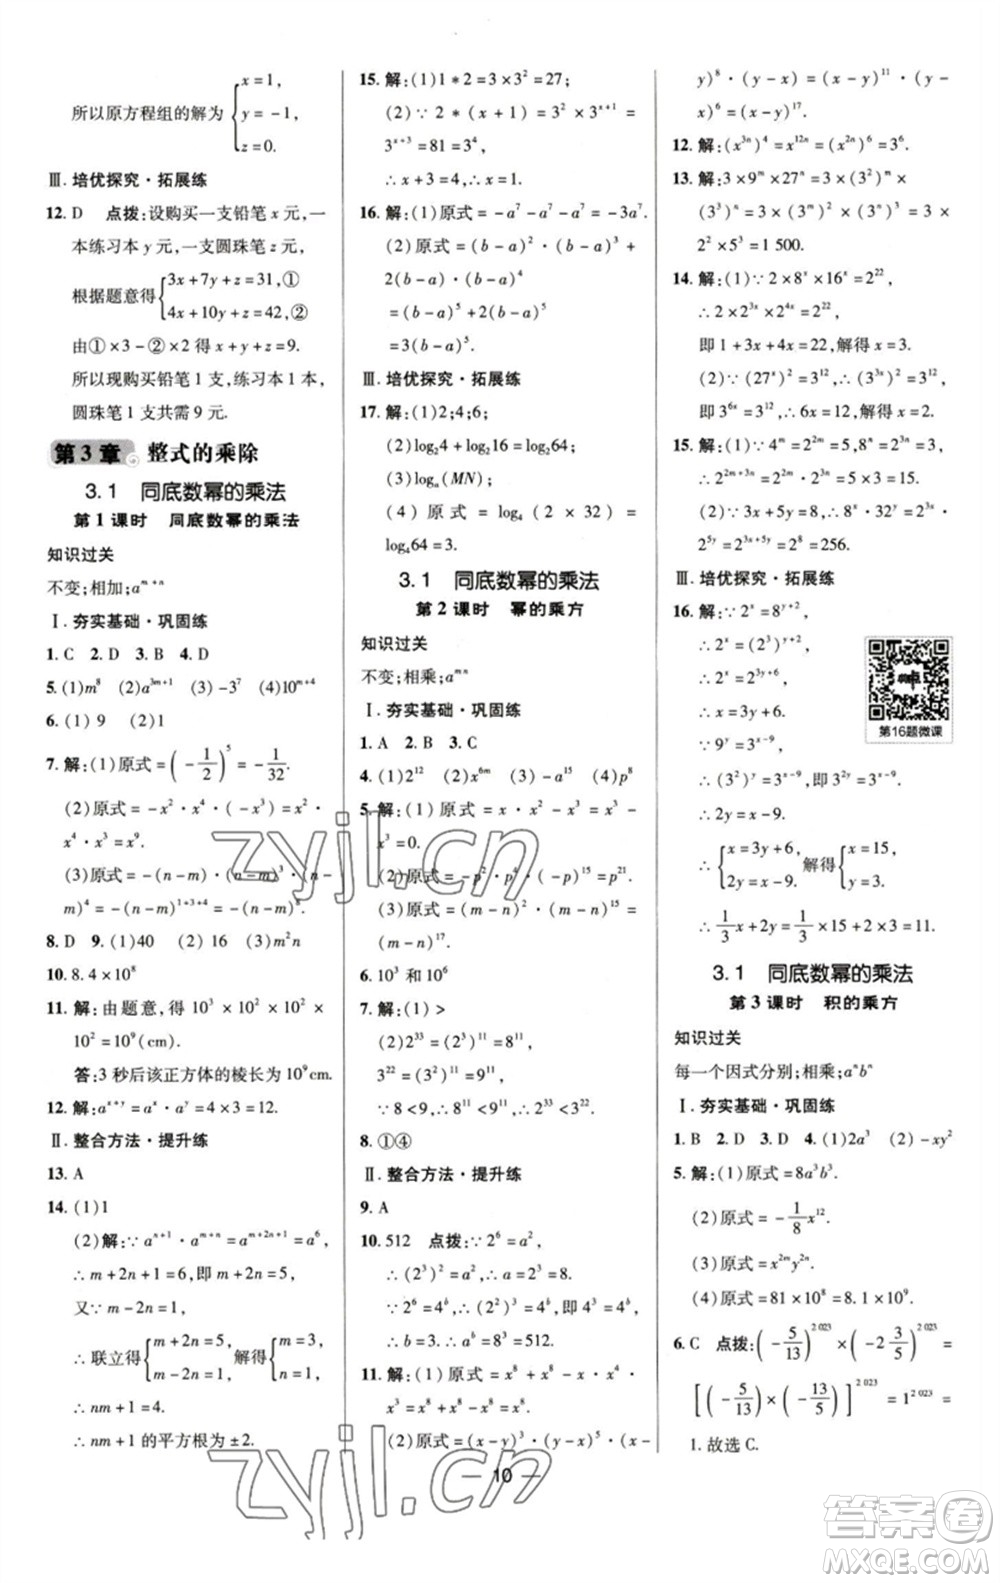 所以原方程组的解为{x=1,
y=-1,
z=0.
Ⅲ. 培优探究·拓展练
12. D 点拨:设购买一支铅笔 x 元,一
本练习本 y 元,一支圆珠笔 z 元,
根据题意得{3x+7y+z=31,①
4x+10y+z=42,②
由①×3-②×2 得 x+y+z=9.
所以现购买铅笔 1 支,练习本 1 本,
圆珠笔 1 支共需 9 元.
第 3 章 整式的乘除
3.1 同底数幂的乘法
第 1 课时 同底数幂的乘法
知识过关
不变;相加;a^{m+n}
Ⅰ. 夯实基础·巩固练
1. C 2. D 3. B 4. D
5. (1)m^8 (2)a^{3m+1} (3)-3^7 (4)10^{m+4}
6. (1) 9 (2)1
7. 解:(1)原式=(-1/2)^5=-1/32.
(2)原式=-x^2·x^4·(-x^3)=
x^2·x^4·x^3=x^9.
(3)原式=-(n-m)·(n-
m)^4=-(n-m)^{1+3+4}=-(n-m)^8.
8. D 9. (1)40 (2) 16 (3)m^2n
10. 8.4×10^8
11. 解:由题意,得 10^3×10^2×10^2×
10^2=10^9(cm).
答:3 秒后该正方体的棱长为 10^9 cm.
12. 解:a^{x+y}=a^x·a^y=4×3=12.
Ⅱ. 整合方法·提升练
13. A
14. (1)1
(2)解:∵a^{n+1}·a^{m+n}=a^{m+2n+1}=a^6,
∴m+2n+1=6,即 m+2n=5,
又∵m-2n=1,
∴联立得{m+2n=5,
m-2n=1,
解得{m=3,
n=1,
∴nm+1=4.
∴nm+1 的平方根为±2.
15. 解:(1)1*2=3×3^2=27;
(2)∵2*(x+1)=3^2×3^{x+1}=
3^{x+3}=81=3^4,
∴x+3=4,∴x=1.
16. 解:(1)原式=-a^7-a^7-a^7=-3a^7.
(2)原式=(b-a)^2·(b-a)^3+
2(b-a)·(b-a)^4
=(b-a)^5+2(b-a)^5
=3(b-a)^5.
Ⅲ. 培优探究·拓展练
17. 解:(1)2;4;6;
(2)log_2 4+log_2 16=log_2 64;
(3)log_a(MN);
(4)原式=log_4(2×32)=
log_4 64=3.
3.1 同底数幂的乘法
第 2 课时 幂的乘方
知识过关
不变;相乘;a^{mn}
Ⅰ. 夯实基础·巩固练
1. A 2. B 3. C
4. (1)2^{12} (2)x^{6m} (3)-a^{15} (4)p^8
5. 解:(1)原式=x·x^2-x^3=x^3-
x^3=0.
(2)原式=-p^2·(-p)^{15}=p^{17}.
(3)原式=(m-n)^2·(m-n)^{15}=
(m-n)^{17}.
6. 10^3 和 10^4
7. 解:(1) >
(2)2^{33}=(2^3)^{11}=8^{11},
3^{22}=(3^2)^{11}=9^{11}.
∵8<9,∴8^{11}<9^{11},∴2^{33}<3^{22}.
8. ①④
Ⅱ. 整合方法·提升练
9. A
10. 512 点拨:∵2^6=a^2,
∴(2^3)^2=a^2,∴a=8.
∵2^6=4^b,∴(2^2)^3=4^b,即 4^3=4^b,
∴b=3.∴a^b=8^3=512.
11. 解:(1)原式=x^8+x^8-x^8+x^8=
2x^8.
(2)原式=(x-y)^3·(x-y)^6·(x-
y)^8·(x-y)=(x-y)^{11}·(y-
x)^6=(x-y)^{17}.
12. 解:(x^{3n})^4=x^{12n}=(x^{2n})^6=3^6.
13. 解:3×9^m×27^n=3×(3^2)^m×
(3^3)^n=3×(3^m)^2×(3^n)^3=3×
2^2×5^3=1 500.
14. 解:(1)∵2×8^x×16^x=2^{22},
∴2×2^{3x}×2^{4x}=2^{22},
即 1+3x+4x=22,解得 x=3.
(2)∵(27^x)^2=3^{12},∴(3^{3x})^2=3^{12},
即 3^{6x}=3^{12},∴6x=12,解得 x=2.
15. 解:(1)∵4^m=2^{2m}=5,8^n=2^{3n}=10,
∴2^{2m+3n}=2^{2m}·2^{3n}=5×10=50.
(2)∵3x+5y=8,∴8^x·32^y=2^{3x}·
2^{5y}=2^{3x+5y}=2^8=256.
Ⅲ. 培优探究·拓展练
16. 解:∵2^x=8^{y+2},
∴2^x=(2^3)^{y+2},
∴2^x=2^{3y+6},
∴x=3y+6.
∵9^y=3^{x-9},
∴(3^2)^y=3^{x-9},即 3^{2y}=3^{x-9},
∴2y=x-9.
∴{x=3y+6,
2y=x-9,
解得{x=15,
y=3,
∴1/3x+2y=1/3×15+2×3=11.
第16题微课
3.1 同底数幂的乘法
第 3 课时 积的乘方
知识过关
每一个因式分别;相乘;a^n b^n
Ⅰ. 夯实基础·巩固练
1. B 2. D 3. D 4. (1)2a^3 (2)-xy^2
5. 解:(1)原式=8a^3b^3.
(2)原式=-1/8x^{12}.
(3)原式=x^{2m}y^{2n}.
(4)原式=81×10^8=8.1×10^9.
6. C 点拨:(-5/13)^{2 023}×(-2 3/5)^{2 023}=
[(-5/13)×(-13/5)]^{2 023}=1^{2 023}=
1. 故选 C.
10
zyjl.cn
zyjl.cn
答案圈
MXQE.COM